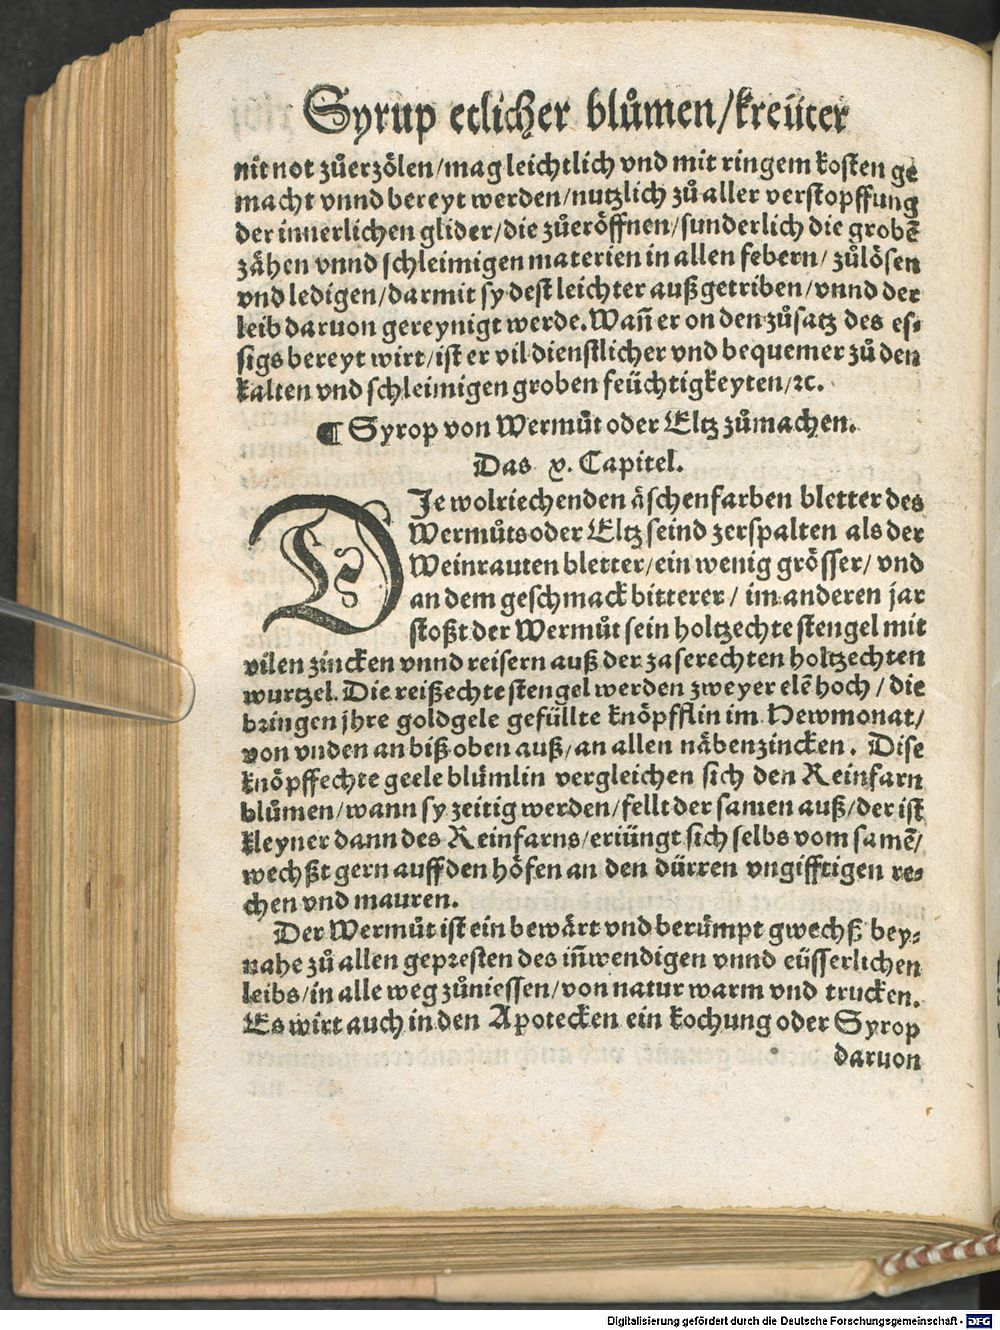 Syrup etlicher blůmen/kreüter
nit not zůerzölen/mag leichtlich vnd mit ringem kosten ge
macht vnnd bereyt werden/nutzlich zů aller verstopffung
der innerlichen glider/die zůeröffnen/sunderlich die grobē
zähen vnnd schleimigen materien in allen febern/ zůlösen
vnd ledigen/darmit sy dest leichter auß getriben/vnnd der
leib daruon gereynigt werde. Wañ er on den zůsatz des es⸗
sigs bereyt wirt/ist er vil dienstlicher vnd bequemer zů den
kalten vnd schleimigen groben feüchtigkeyten/ꝛc.
¶ Syrop von Wermůt oder Eltz zůmachen.
Das v. Capitel.
DJe wolriechenden äschenfarben bletter des
Wermůts oder Eltz seind zerspalten als der
Weinrauten bletter/ein wenig grösser/ vnd
an dem geschmack bitterer/ im anderen jar
stoßt der Wermůt sein holtzechte stengel mit
vilen zincken vnnd reisern auß der zaserechten holtzechten
wurtzel. Die reißechte stengel werden zweyer elē hoch/ die
bringen jhre goldgele gefüllte knöpfflin im Hewmonat/
von vnden an biß oben auß/an allen näbenzincken. Dise
knöpffechte geele blümlin vergleichen sich den Reinfarn
blůmen/wann sy zeitig werden/fellt der samen auß/der ist
kleyner dann des Reinfarns/eriüngt sich selbs vom samē/
wechßt gern auff den höfen an den dürren vngifftigen re⸗
chen vnd mauren.
Der Wermůt ist ein bewärt vnd berümpt gwechß bey⸗
nahe zů allen gepresten des iñwendigen vnnd eüsserlichen
leibs/in alle weg zůniessen/von natur warm vnd trucken.
Es wirt auch in den Apotecken ein kochung oder Syrop
daruon
Digitalisierung gefördert durch die Deutsche Forschungsgemeinschaft - DFG